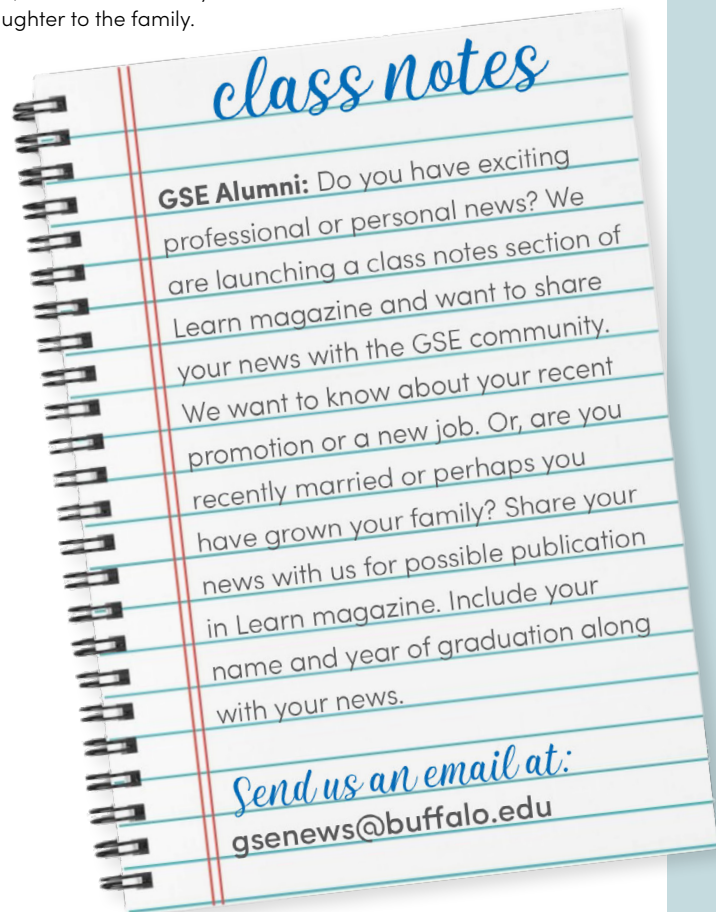 ughter to the family.
class notes
GSE Alumni: Do you have exciting
professional or personal news? We
are launching a class notes section of
Learn magazine and want to share
your news with the GSE community.
We want to know about your recent
promotion or a new job. Or, are you
recently married or perhaps you
have grown your family? Share your
news with us for possible publication
in Learn magazine. Include your
name and year of graduation along
with your news.
Send us an email at:
gsenews@buffalo.edu